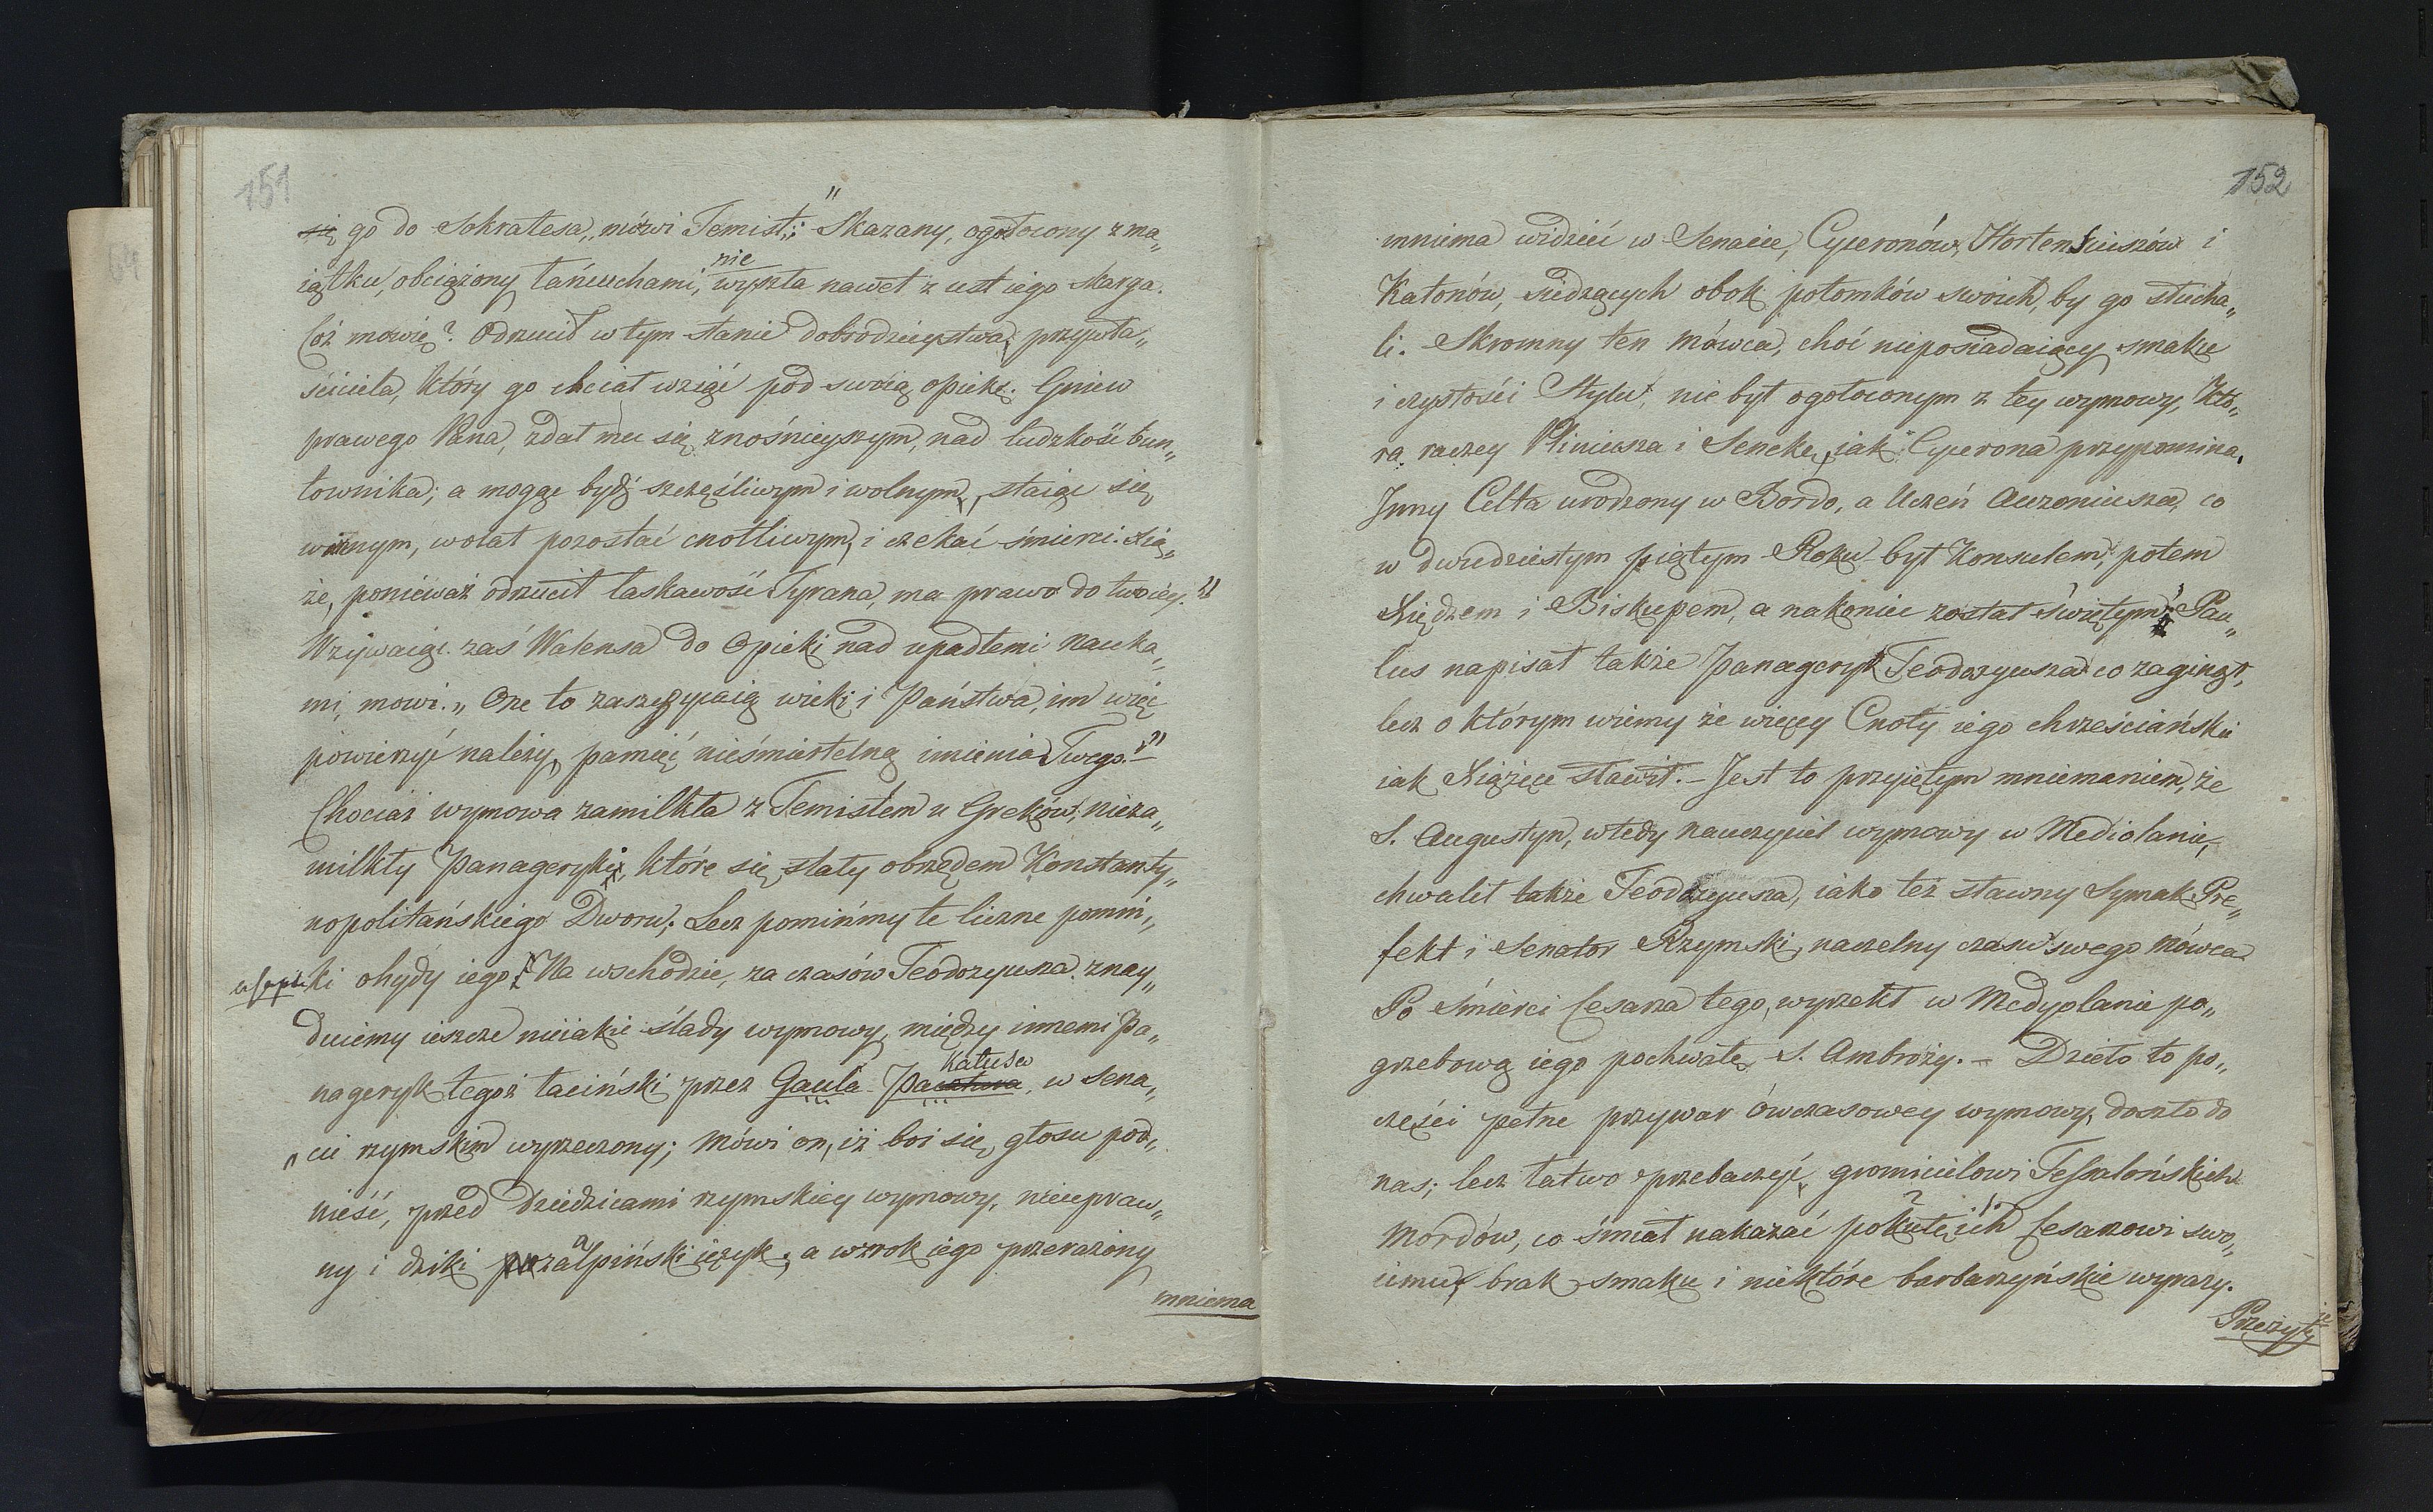 151
się go do Sokratesa, mówi Temist: "Skazany, ogołocony z ma„
iątku, obciążony łańcuchami, nie wyszła nawet z ust iego skarga.
Cóż mówię? Odrzucił w tym stanie dobrodzieystwa przywła„
ściciela, który go chciał wziąść pod swoią opiekę. Gniew
prawego Pana, zdał mu się znośnieyszym, nad ludzkość bun„
townika; a mogąc bydź szczęśliwym i wolnym, staiąc się
winnym, wolał pozostać cnotliwym, i czekać śmierci. Xią„
że, ponieważ odrzucił łaskawość Tyrana, ma prawo do twoiey."
Wzywaiąc zaś Walensa do Opieki nad upadłemi Nauka„
mi, mowi. „One to zaszczycaią wieki i Państwa, im więc
powierzyć należy, pamięć nieśmiertelną imienia Twego."
Chociaż wymowa zamilkła z Temistem u Greków, nieza„
milkły Panageryki, które się stały obrzędem Konstanty„
nopolitańskiego Dworu; Lecz pomińmy te liczne pomni„
ki ohydy iego. Na wschodzie, za czasów Teodozyusza znay„
duiemy ieszcze nieiakie ślady wymowy, między innemi Pa„
nageryk tegoż łaciński przez Gaula Pakatusa w Sena„
cie rzymskim wyrzeczony; mówi on, iż boi się głosu pod„
nieść, przed Dziedzicami rzymskiey wymowy, nieupraw„
ny i dziki zaalpiński ięzyk, a wzrok iego przerażony
mniema
152
mniema widzieć w Senacie, Cyceronów, Hortensiuszów i
Katonów, siedzących obok potomków swoich, by go słucha„
li. Skromny ten mówca, choć nieposiadaiący smaku
i czystości Stylu, nie był ogołoconym z tey wymowy, Któ„
ra raczey Pliniusza i Senekę, iak Cycerona przypomina.
Inny Celta urodzony w Bordo, a Uczeń Auzoniusza, co
w dwudziestym piątym Roku był Konsulem, potem
Xiędzem i Biskupem, a nakoniec został świętym, Pau„
lus napisał także Panageryk Teodozyusza co zaginął,
lecz o którym wiemy że więcey Cnoty iego chrześciańskie
iak Xiążęce sławił. - Jest to przyiętym mniemaniem, że
S. Augustyn, wtedy nauczyciel wymowy w Mediolanie,
chwalił także Teodozyusza, iako też sławny Symak Pre„
fekt i Senator Rzymski, naczelny czasu swego Mówca
Po Śmierci Cesarza tego, wyrzekł w Medyolanie po„
grzebową iego pochwałę S. Ambroży. - Dzieło to po„
części pełne przywar ówczasowey wymowy, doszło do
nas; lecz łatwo przebaczyć gromicielowi Tessalońskich
Mordów, co śmiał nakazać pokutę ich Cesarzowi swo„
iemu, brak smaku i niektóre barbarzyńskie wyrazy.
Przeżyty